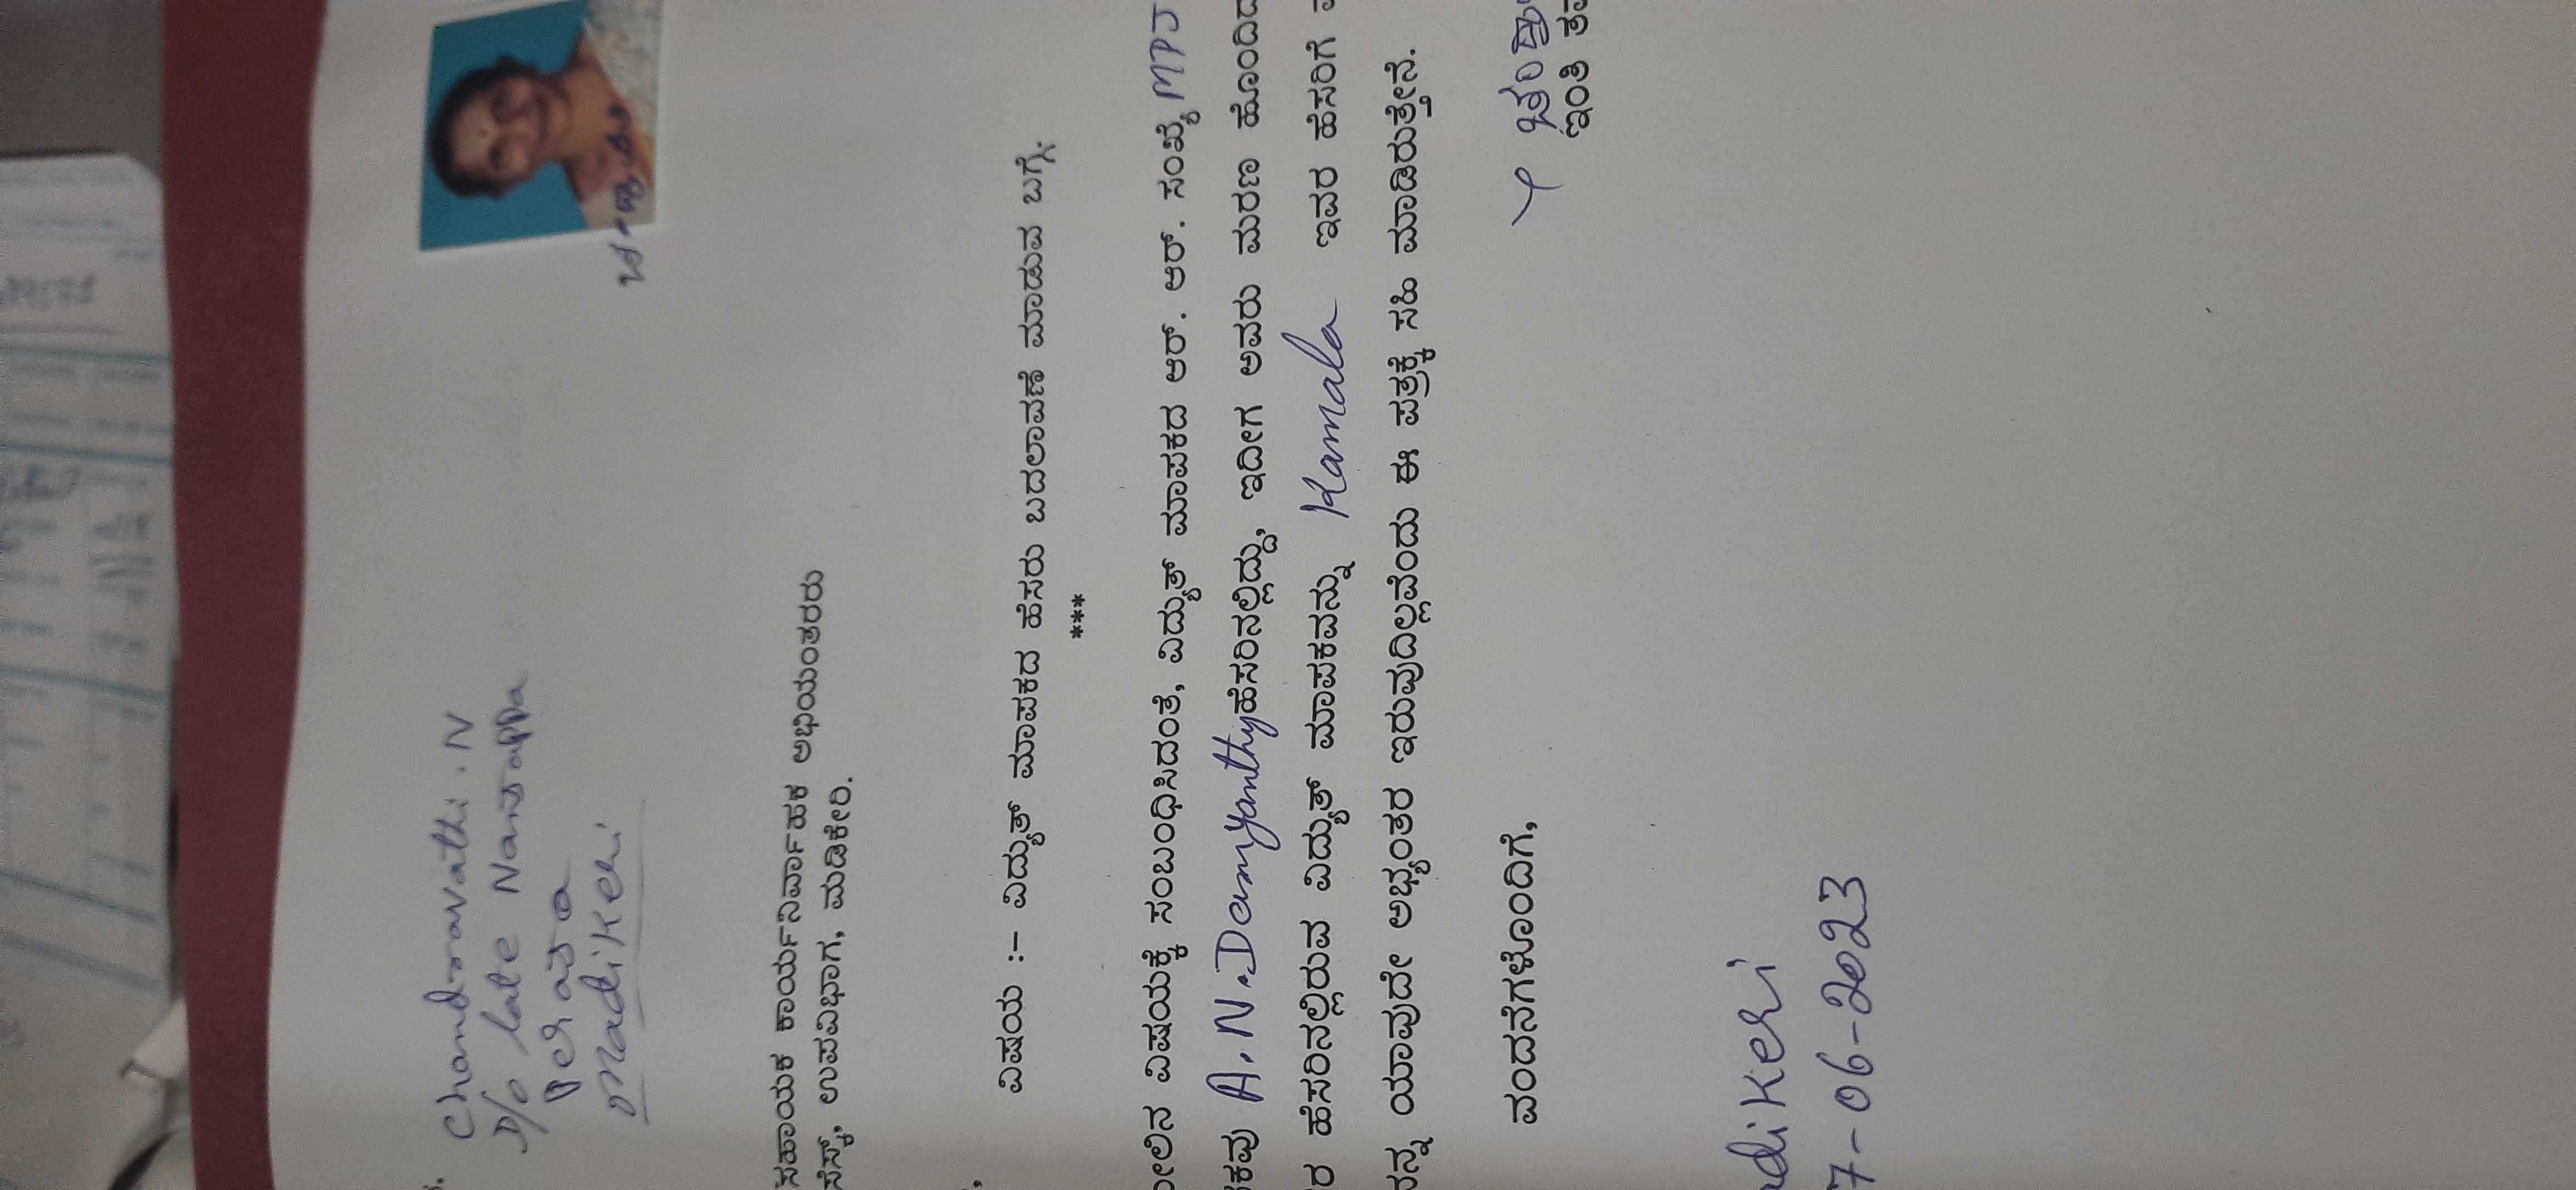 Chandravathi . N
D/o late Nanjappa
Peraja
Madikeri
ಚಂದ್ರಾವತಿ
ಸಹಾಯಕ ಕಾರ್ಯನಿರ್ವಾಹಕ ಅಭಿಯಂತರರು
ಸೆಸ್ಕ್, ಉಪವಿಭಾಗ, ಮಡಿಕೇರಿ.
ವಿಷಯ :– ವಿದ್ಯುತ್ ಮಾಪಕದ ಹೆಸರು ಬದಲಾವಣೆ ಮಾಡುವ ಬಗ್ಗೆ.
***
ಮೇಲಿನ ವಿಷಯಕ್ಕೆ ಸಂಬಂಧಿಸಿದಂತೆ, ವಿದ್ಯುತ್ ಮಾಪಕದ ಆರ್. ಆರ್. ಸಂಖ್ಯೆ MPJ
A.N. Damyanthy ಹೆಸರಿನಲ್ಲಿದ್ದು, ಇದೀಗ ಅವರು ಮರಣ ಹೊಂದಿದ
ಹೆಸರಿನಲ್ಲಿರುವ ವಿದ್ಯುತ್ ಮಾಪಕವನ್ನು Kamala ಇವರ ಹೆಸರಿಗೆ
ನನ್ನ ಯಾವುದೇ ಅಭ್ಯಂತರ ಇರುವುದಿಲ್ಲವೆಂದು ಈ ಪತ್ರಕ್ಕೆ ಸಹಿ ಮಾಡಿರುತ್ತೇನೆ.
ವಂದನೆಗಳೊಂದಿಗೆ,
ಇಂತಿ
adikeri
7-06-2023